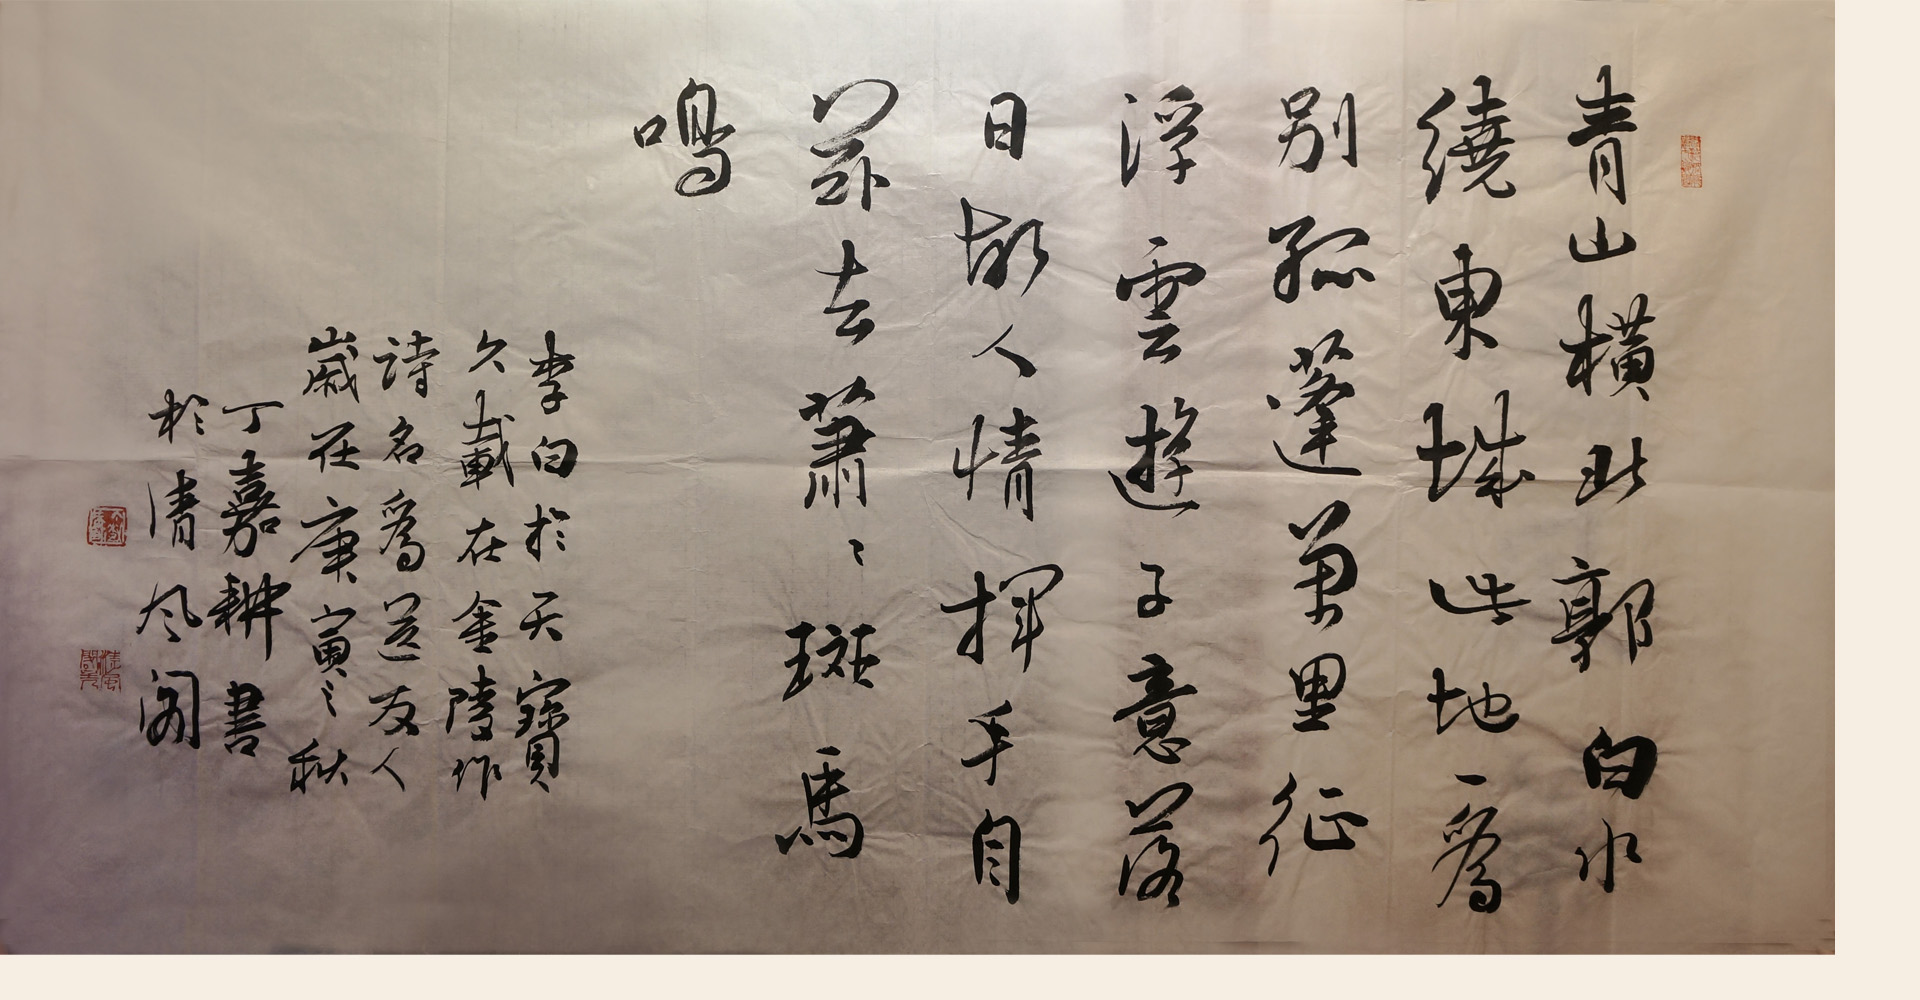 青山橫北郭白水
繞東城此地一為
別孤蓬萬里征
浮雲遊子意落
日故人情揮手自
茲去蕭〻斑馬
鳴
李白於天寶
久載在金陵作
詩名為送友人
歲在庚寅之秋
丁嘉耕書
於清风阁